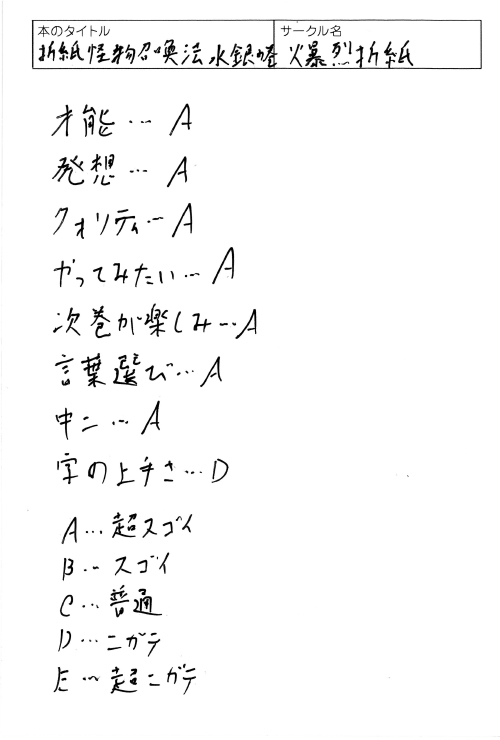 本のタイトル
サークル名
折紙怪物召喚法 水銀燈
火暴烈折紙
才能… A
発想… A
クォリティ…A
やってみたい…A
次巻が楽しみ…A
言葉選び…A
中二…A
字の上手さ…D
A…超スゴイ
B…スゴイ
C…普通
D…ニガテ
E…超ニガテ